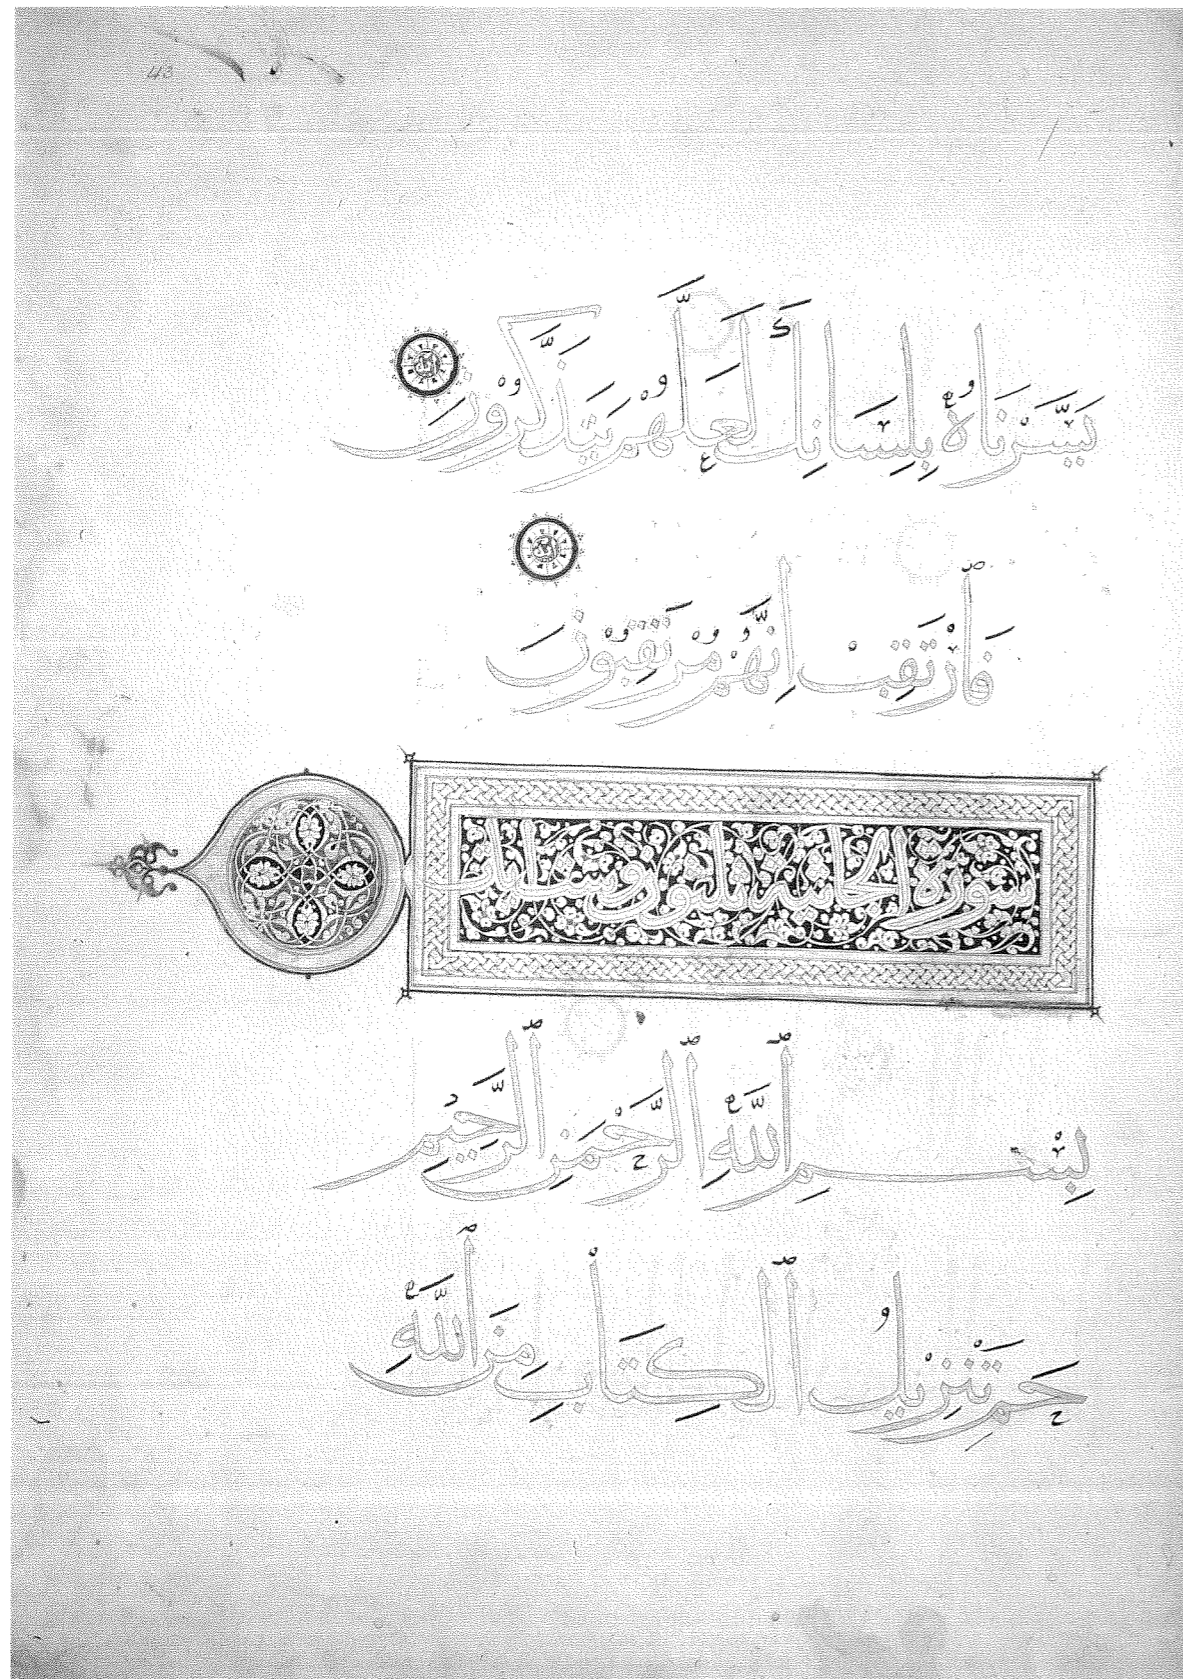 43
يَسَّرْنَاهُ بِلِسَانِكَ لَعَلَّهُمْ يَتَذَكَّرُونَ
فَٱرْتَقِبْ اِنَّهُمْ مُرْتَقِبُونَ
سورة الجاثية ثلثون وست ايات
بِسْمِ ٱللَّهِ ٱلرَّحْمَنِ ٱلرَّحِيمِ
حَم تَنْزِيلُ ٱلْكِتَابِ مِنَ ٱللَّهِ